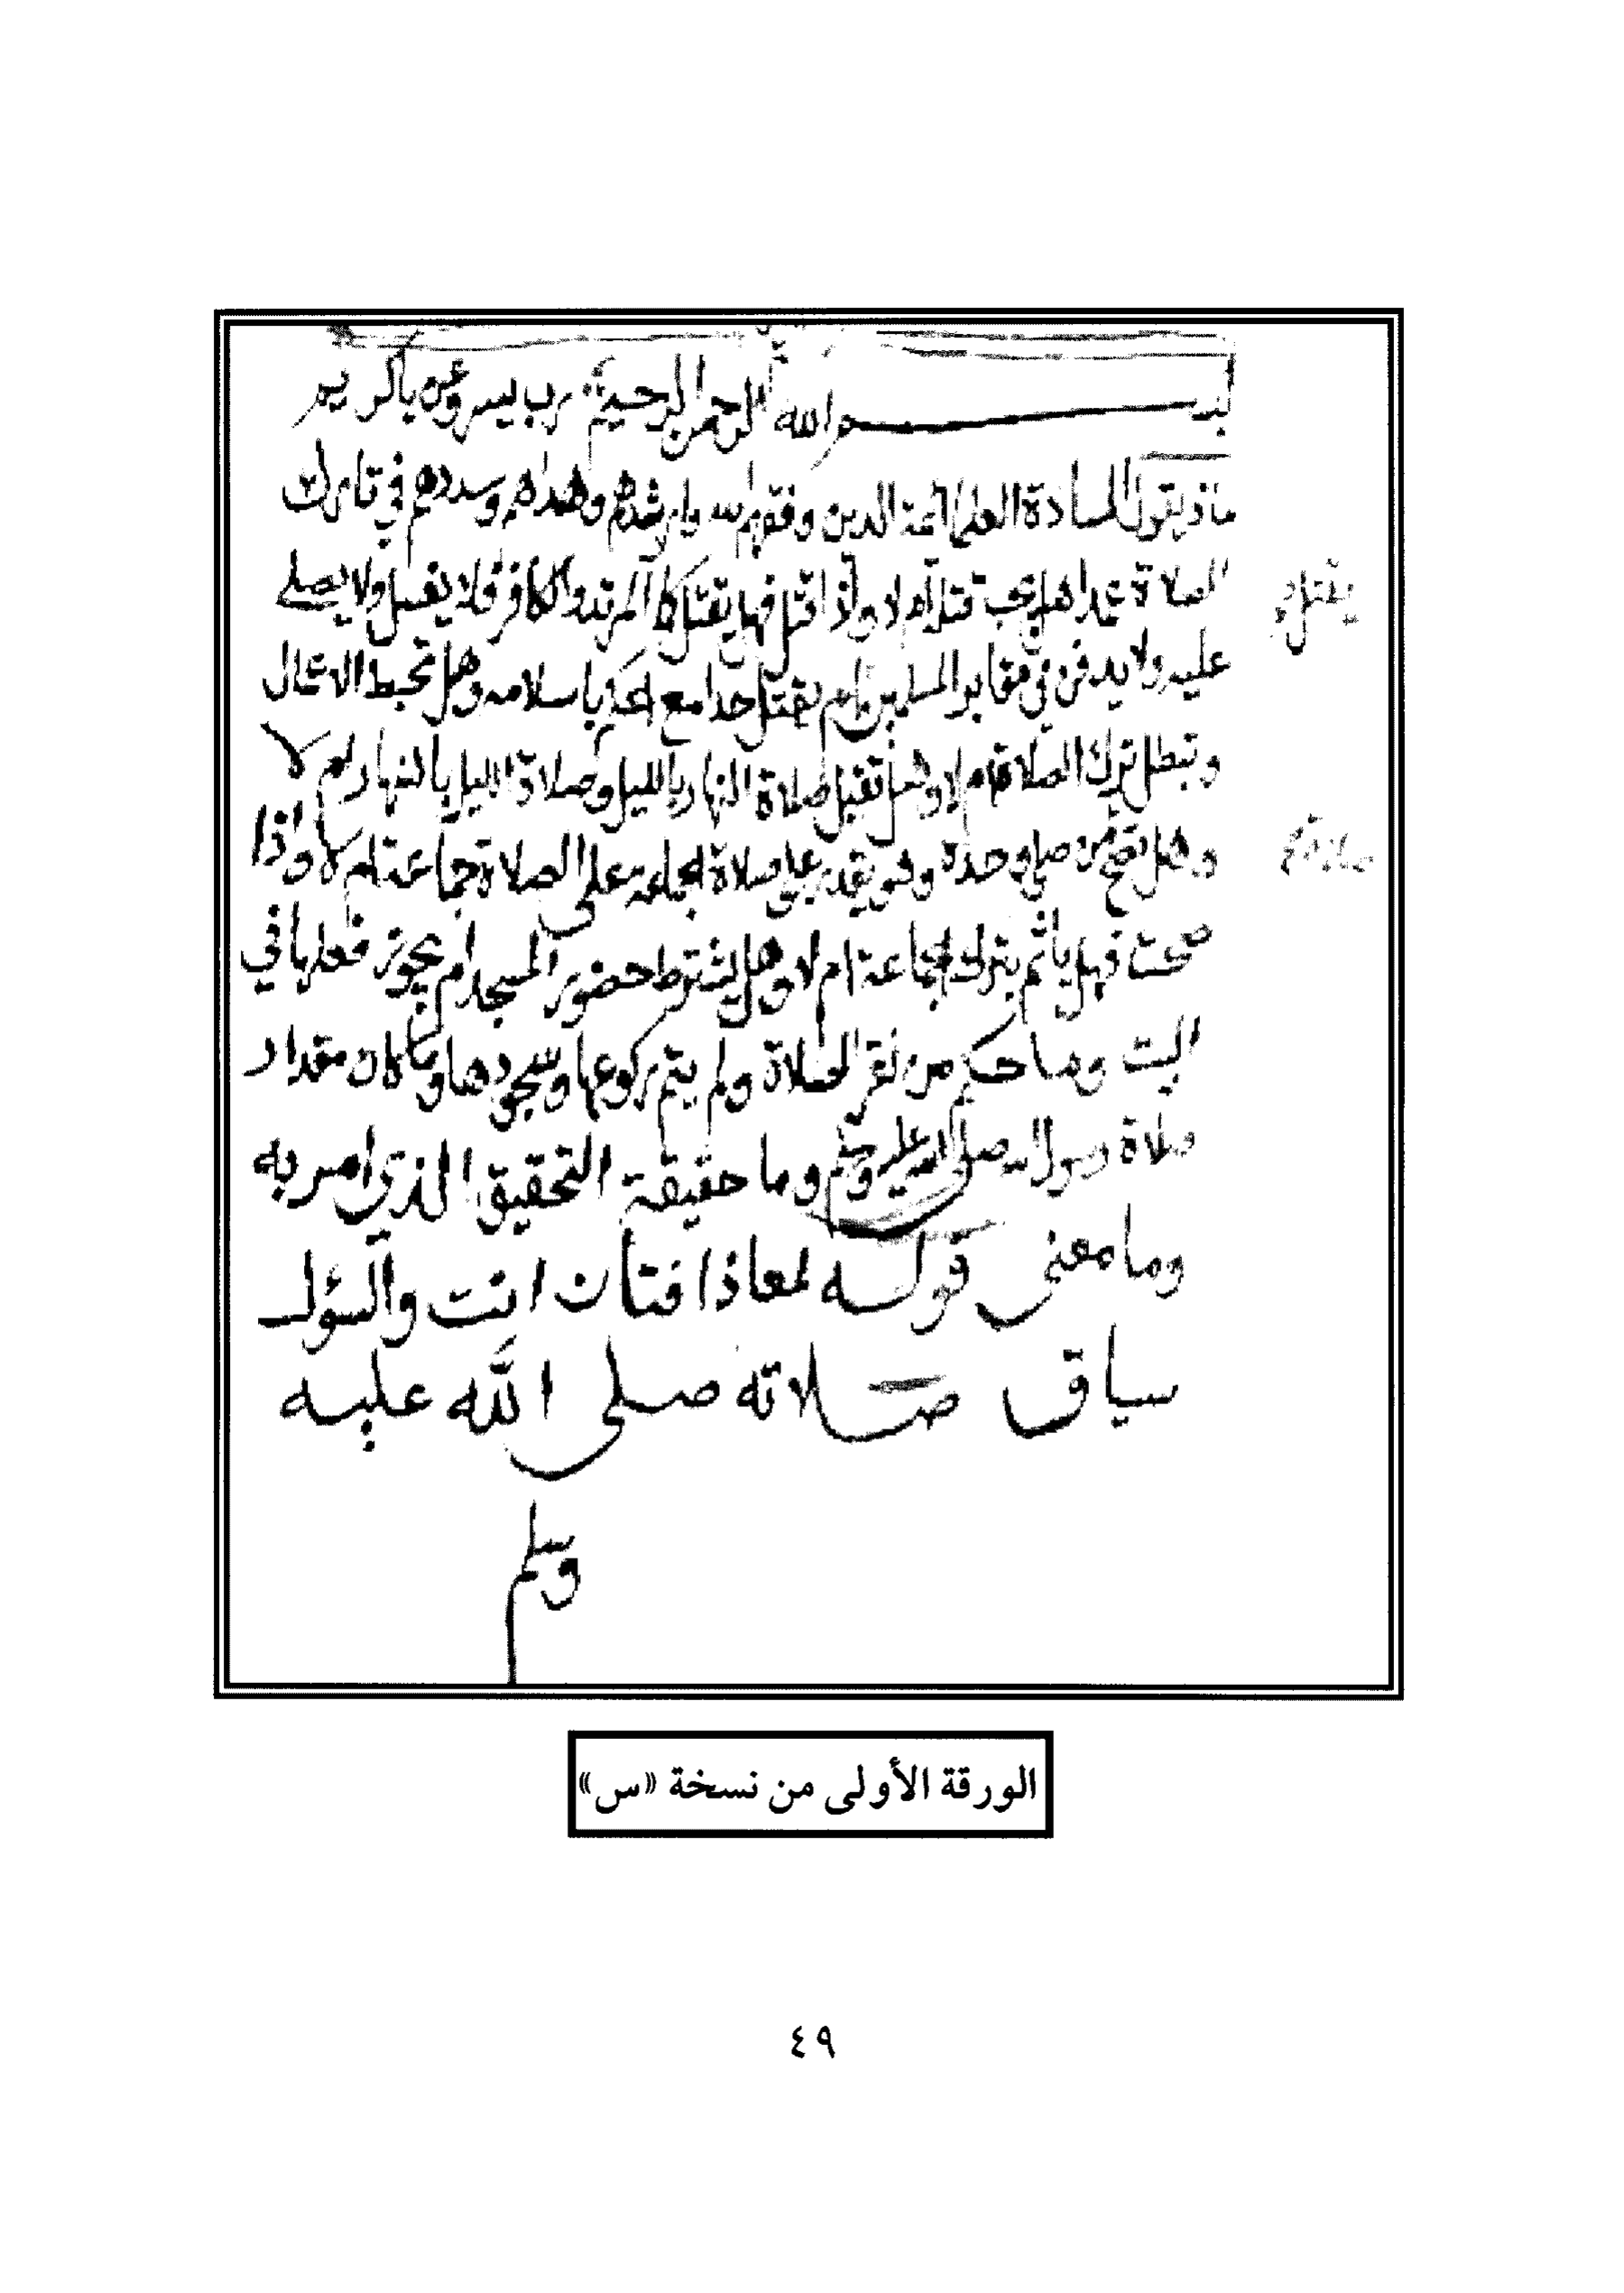 بسم الله الرحمن الرحيم رب يسر وعن ياكريم
ماذ يقول السادة العلما ائمة الدين وفقهم الله وارشدهم وهداهم وسددهم في تارك
الصلاة عمدا هل يجب قتله ام لا واذا قتل فهل يقتل كالمرتد والكافر فلا يغسل ولا يصلى
يقتل
عليه ولا يدفن في مقابر المسلمين ام يقتل حدا مع باسلامه وهل تحبط الاعمال
وتبطل ترك الصلاة ام لا وهل تقبل صلاة النهار بالليل وصلاة الليل بالنهار ام لا
وهل تصح من صلى وحده وهو يقدر على صلاة الجماعة على الصلاة جماعة ام لا واذا
صلاة
صحت فهل ياثم بترك الجماعة ام لا وهل يشترط حضور المسجد ام يجوز فعلها في
البيت وما حكم من نقر الصلاة ولم يتم ركوعها وسجودها وما كان مقدار
صلاة رسول الله صلى الله عليه وسلم وما حقيقة التحقيق الذي امر به
وما معنى قوله لمعاذ افتان انت والسؤل
سياق صلاته صلى الله عليه
وسلم
الورقة الأولى من نسخة «س»
٤٩